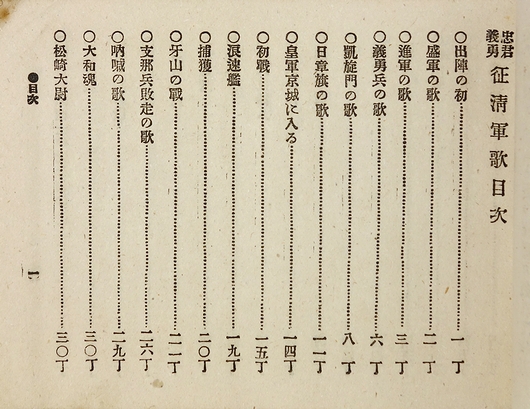 忠君義勇 征淸軍歌目次
○出陣の初 一丁
○盛軍の歌 二丁
○進軍の歌 三丁
○義勇兵の歌 六丁
○凱旋門の歌 八丁
○日章旗の歌 一一丁
○皇軍京城に入る 一四丁
○初戰 一五丁
○浪速艦 一九丁
○捕獲 二〇丁
○牙山の戰 二一丁
○支那兵敗走の歌 二六丁
○吶喊の歌 二九丁
○大和魂 三〇丁
○松崎大尉 三〇丁
●目次 一